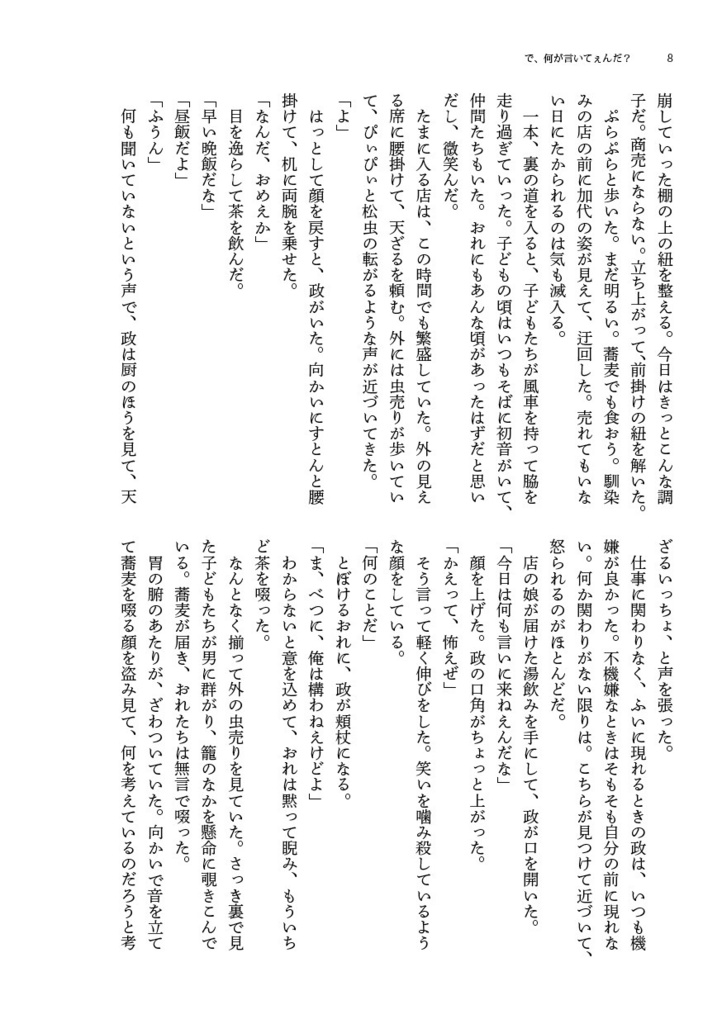 で、何が言いてぇんだ？　8
崩していった棚の上の紐を整える。今日はきっとこんな調
子だ。商売にならない。立ち上がって、前掛けの紐を解いた。
　ぷらぷらと歩いた。まだ明るい。蕎麦でも食おう。馴染
みの店の前に加代の姿が見えて、迂回した。売れてもいな
い日にたかられるのは気も滅入る。
　一本、裏の道を入ると、子どもたちが風車を持って脇を
走り過ぎていった。子どもの頃はいつもそばに初音がいて、
仲間たちもいた。おれにもあんな頃があったはずだと思い
だし、微笑んだ。
　たまに入る店は、この時間でも繁盛していた。外の見え
る席に腰掛けて、天ざるを頼む。外には虫売りが歩いてい
て、ぴぃぴぃと松虫の転がるような声が近づいてきた。
「よ」
　はっとして顔を戻すと、政がいた。向かいにすとんと腰
掛けて、机に両腕を乗せた。
「なんだ、おめえか」
　目を逸らして茶を飲んだ。
「早い晩飯だな」
「昼飯だよ」
「ふうん」
　何も聞いていないという声で、政は厨のほうを見て、天
ざるいっちょ、と声を張った。
　仕事に関わりなく、ふいに現れるときの政は、いつも機
嫌が良かった。不機嫌なときはそもそも自分の前に現れな
い。何か関わりがない限りは。こちらが見つけて近づいて、
怒られるのがほとんどだ。
　店の娘が届けた湯飲みを手にして、政が口を開いた。
「今日は何も言いに来ねえんだな」
　顔を上げた。政の口角がちょっと上がった。
「かえって、怖えぜ」
　そう言って軽く伸びをした。笑いを噛み殺しているよう
な顔をしている。
「何のことだ」
　とぼけるおれに、政が頬杖になる。
「ま、べつに、俺は構わねえけどよ」
　わからないと意を込めて、おれは黙って睨み、もういち
ど茶を啜った。
　なんとなく揃って外の虫売りを見ていた。さっき裏で見
た子どもたちが男に群がり、籠のなかを懸命に覗きこんで
いる。蕎麦が届き、おれたちは無言で啜った。
　胃の腑のあたりが、ざわついていた。向かいで音を立て
て蕎麦を啜る顔を盗み見て、何を考えているのだろうと考